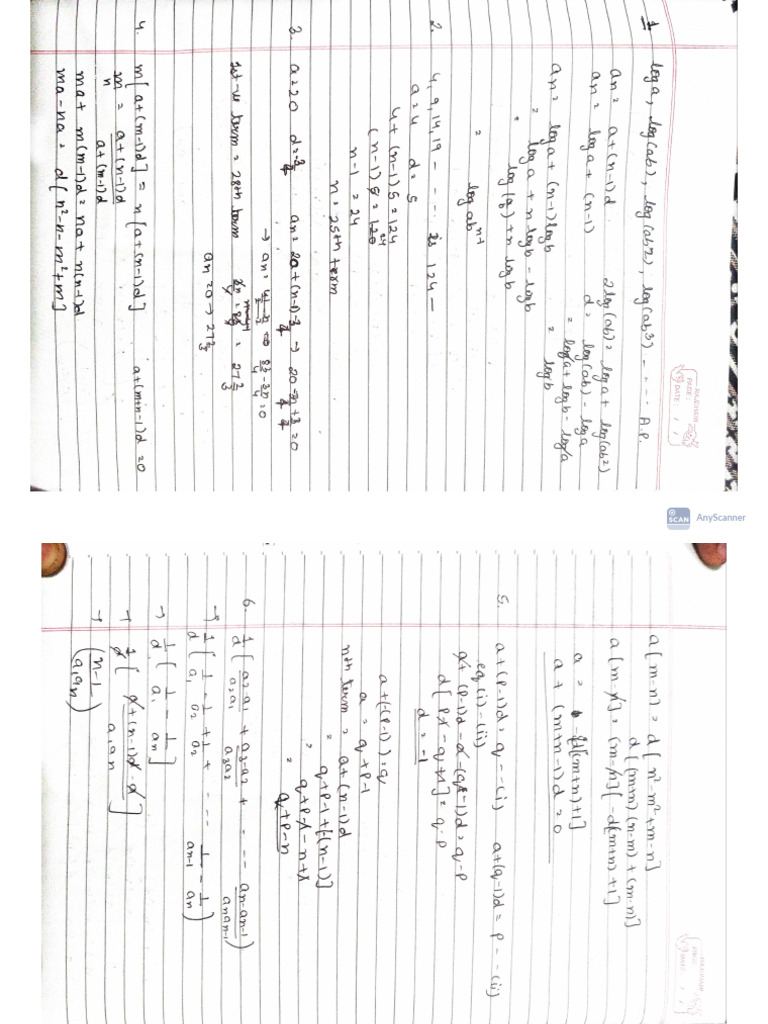 RAJESHWARI
PAGE: / /
DATE: / /
1. log a, log(ab), log(ab2), log(ab3) - - - - A.P.
an = a+(n-1)d 2log(ab) = log a + log(ab2)
an = log a + (n-1) d = log(ab) - log a
= log a + log b - log a
an = log a + (n-1) log b = log b
= log a + n log b - log b
= log (a/b) + n log b
= log ab^n+1
2. 4, 9, 14, 19 - - - - is 124 -
a = 4 d = 5
4 + (n-1) 5 = 124
(n-1) 5 = 120 24
n-1 = 24
n = 25th term
3. a = 20 d = -3/4 an = 20 + (n-1)-3/4 → 20 - 3n/4 + 3/4 = 0
→ an = 83/4 - 3n/4 = 0
1st -ve term = 28th term = 27 2/3
an = 0 → 27 2/3
4. m[a+(m-1)d] = n[a+(n-1)d] a+(m+n-1)d = 0
m/n = a+(n-1)d / a+(m-1)d
ma + m(m-1)d = na + n(n-1)d
ma - na = d[n²-n-m²+m]
SCAN AnyScanner
a[m-n] = d[n²-m²+m-n]
d[(m+n)(n-m)+(m-n)]
a[m-n] = (m-n)[-d(m+n)+1]
a = -d[(m+n)+1]
a + (m+n-1)d = 0
5. a+(p-1)d = q - - (i) a+(q-1)d = p - - (ii)
eq (i) - (ii)
a+(p-1)d - a - (q-1)d = q-p
d[p-1-q+1] = q-p
d = -1
a+(-(p-1)) = q
a = q+p-1
nth term = a+(n-1)d
= q+p-1+[-(n-1)]
= q+p-1-n+1
= q+p-n
6. 1/d [a2-a1/a2a1 + a3-a2/a3a2 + - - - an-an-1/anan-1)
→ 1/d [1/a1 - 1/a2 + 1/a2 + - - - 1/an-1 - 1/an)
→ 1/d [1/a1 - 1/an]
→ 1/d [a+(n-1)d-a / a1an]
→ (n-1/a1an)